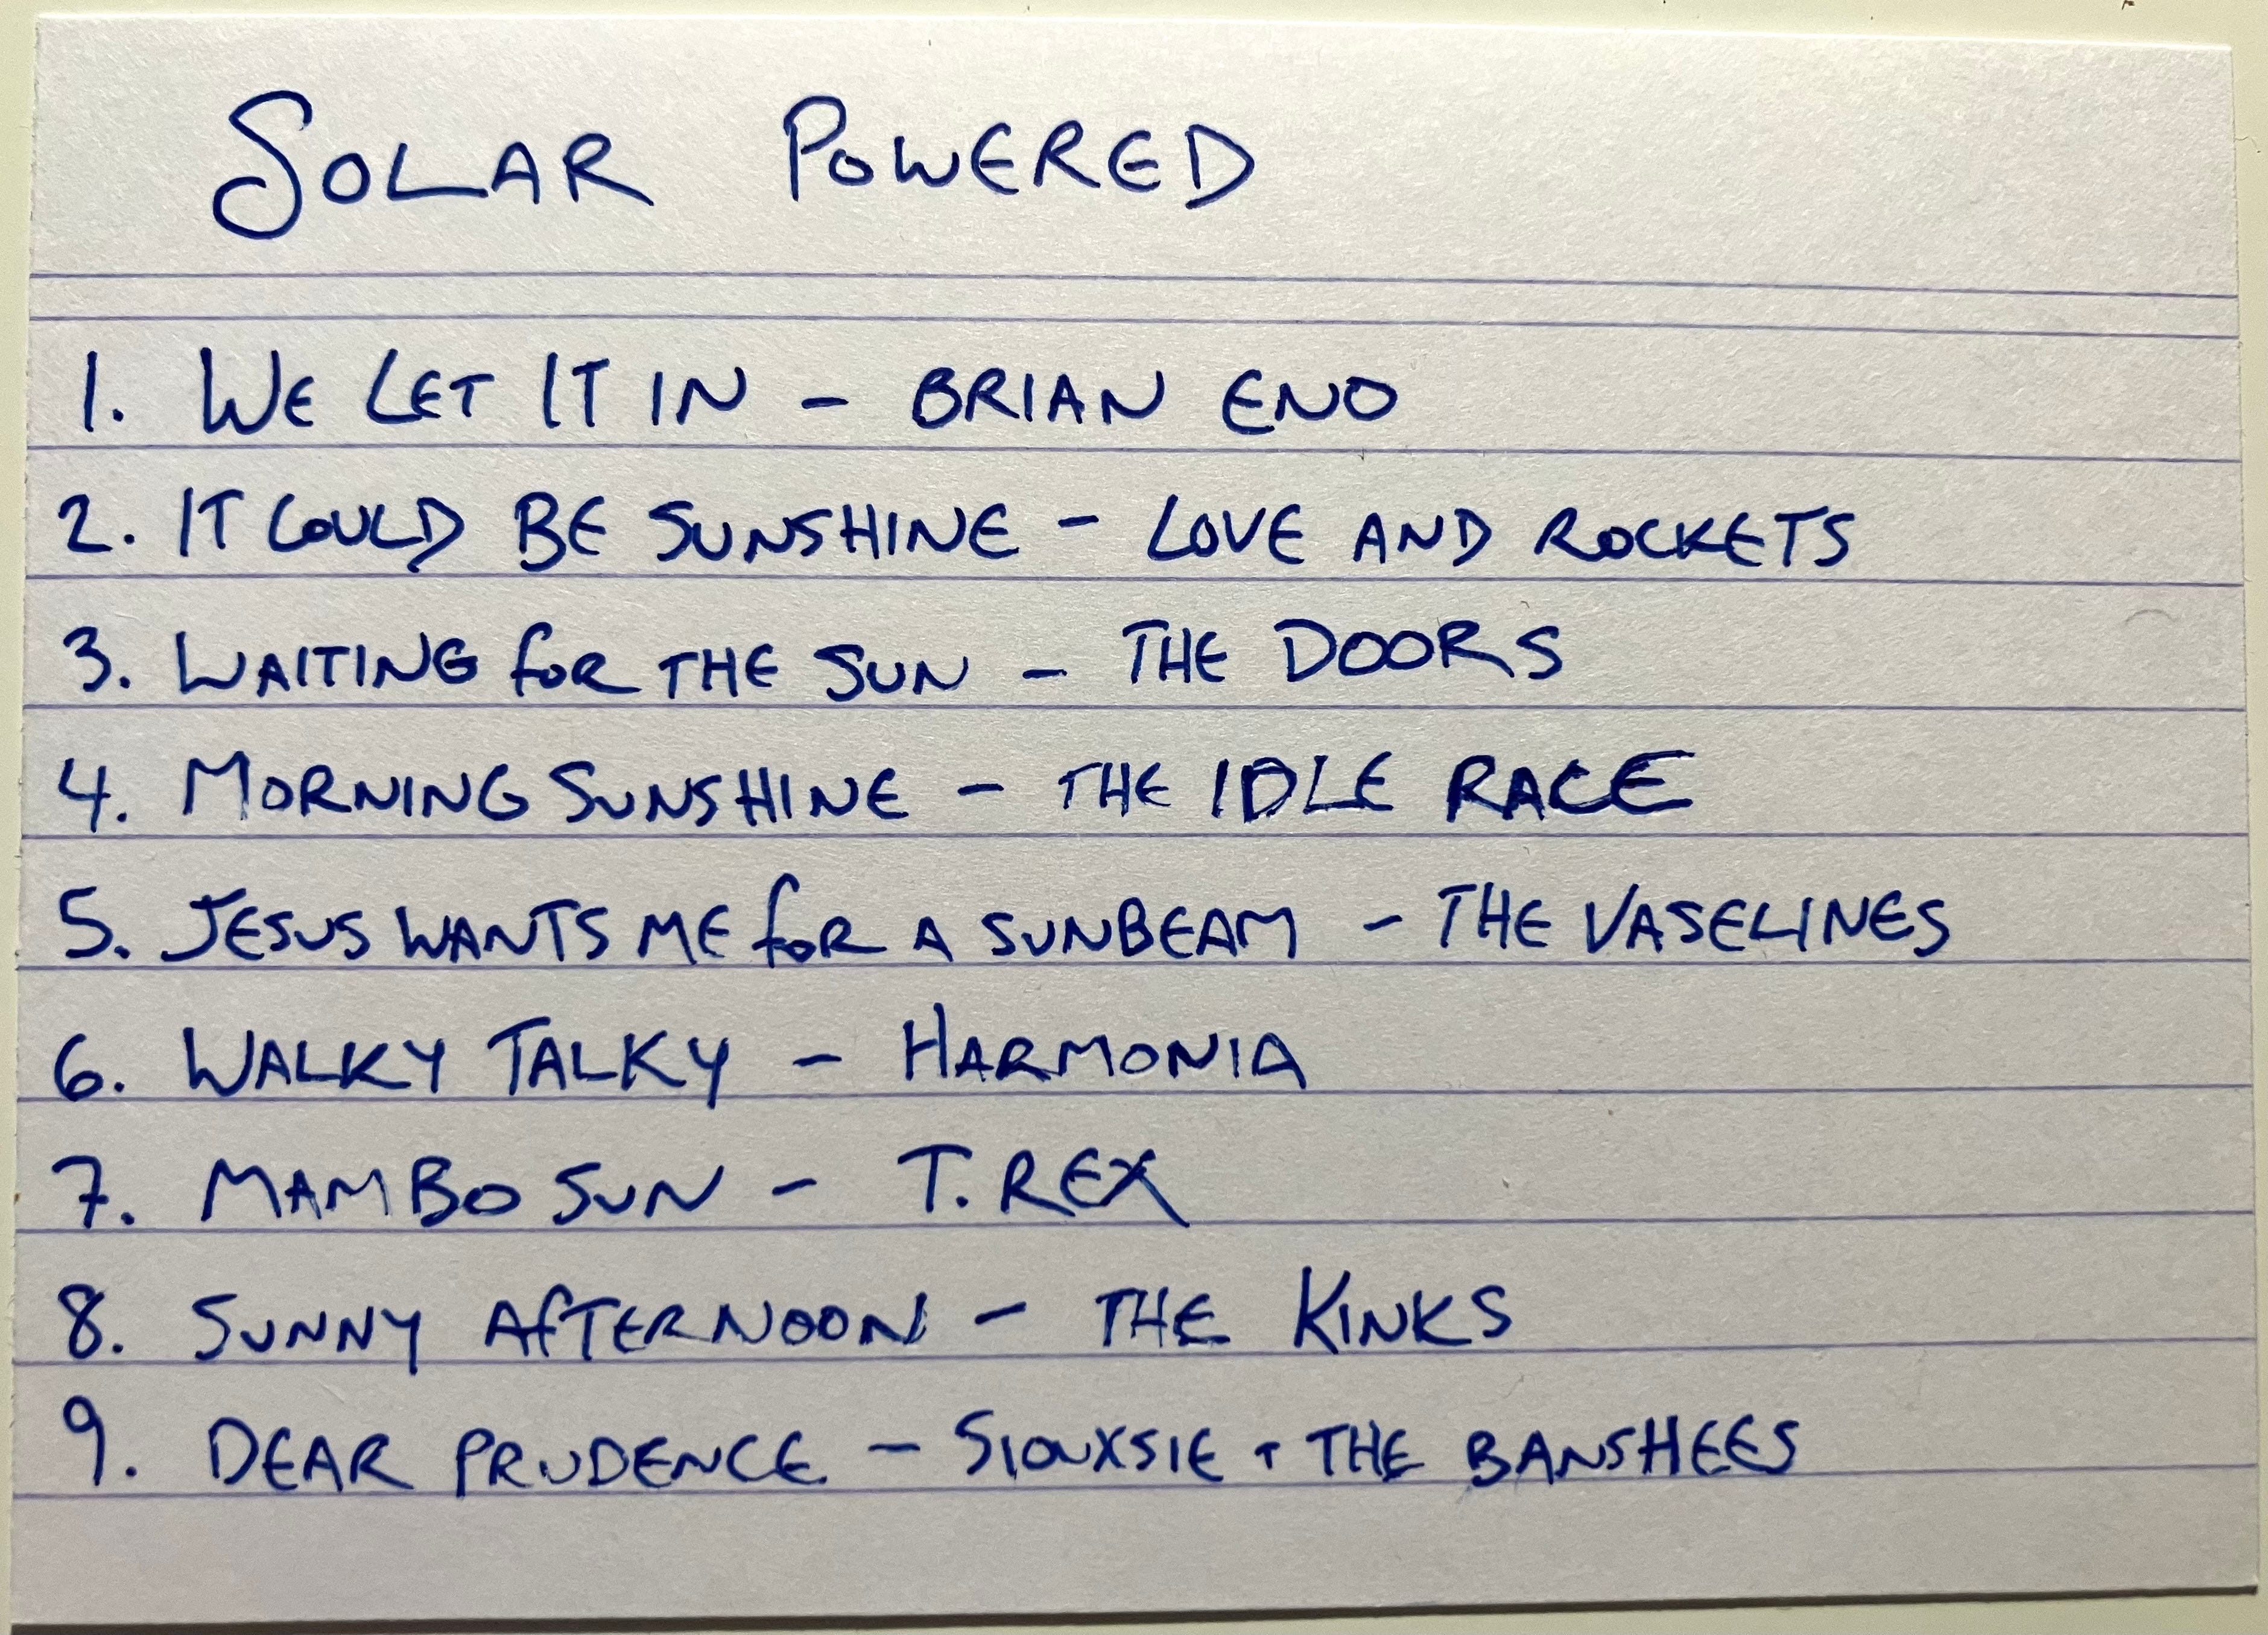 SOLAR POWERED
1. WE LET IT IN - BRIAN ENO
2. IT COULD BE SUNSHINE - LOVE AND ROCKETS
3. WAITING for THE SUN - THE DOORS
4. MORNING SUNSHINE - THE IDLE RACE
5. JESUS WANTS ME for A SUNBEAM - THE VASELINES
6. WALKY TALKY - HARMONIA
7. MAMBO SUN - T. REX
8. SUNNY AfTERNOON - THE KINKS
9. DEAR PRUDENCE - SIOUXSIE + THE BANSHEES